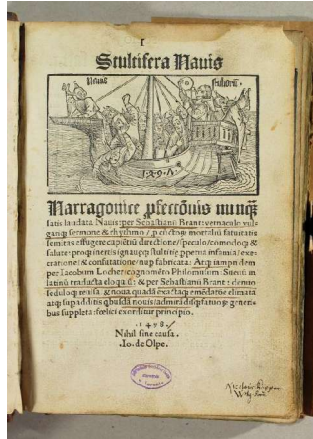 1
Stultifera Nauis
Nauis
stultorũ.
1·4·9·7·
Narragonice ꝓfectiõis nunq̃
satis laudata Nauis: per Sebastianũ Brant: vernaculo vul
gariq; sermone & rhythmo / ꝓ cũctoꝝ mortaliũ fatuitatis
semitas effugere cupiẽtiũ directione / speculo / cõmodoq; &
salute: proq; inertis ignauęq; stultitię ꝑpetua infamia / exe-
cratione / & confutatione / nup fabricata: Atq; iam pridem
per Iacobum Locher / cognomẽto Philomusum: Sueuũ in
latinũ traducta eloquiũ: & per Sebastianũ Brant: denuo
seduloq; reuisa: & noua quadã exactaq; emẽdatõe elimata
atq; supadditis qbusdã nouis / admirãdisq; fatuoꝝ generi-
bus suppleta: fœlici exorditur principio.
·1498·
Nihil sine causa.
Io. de Olpe.